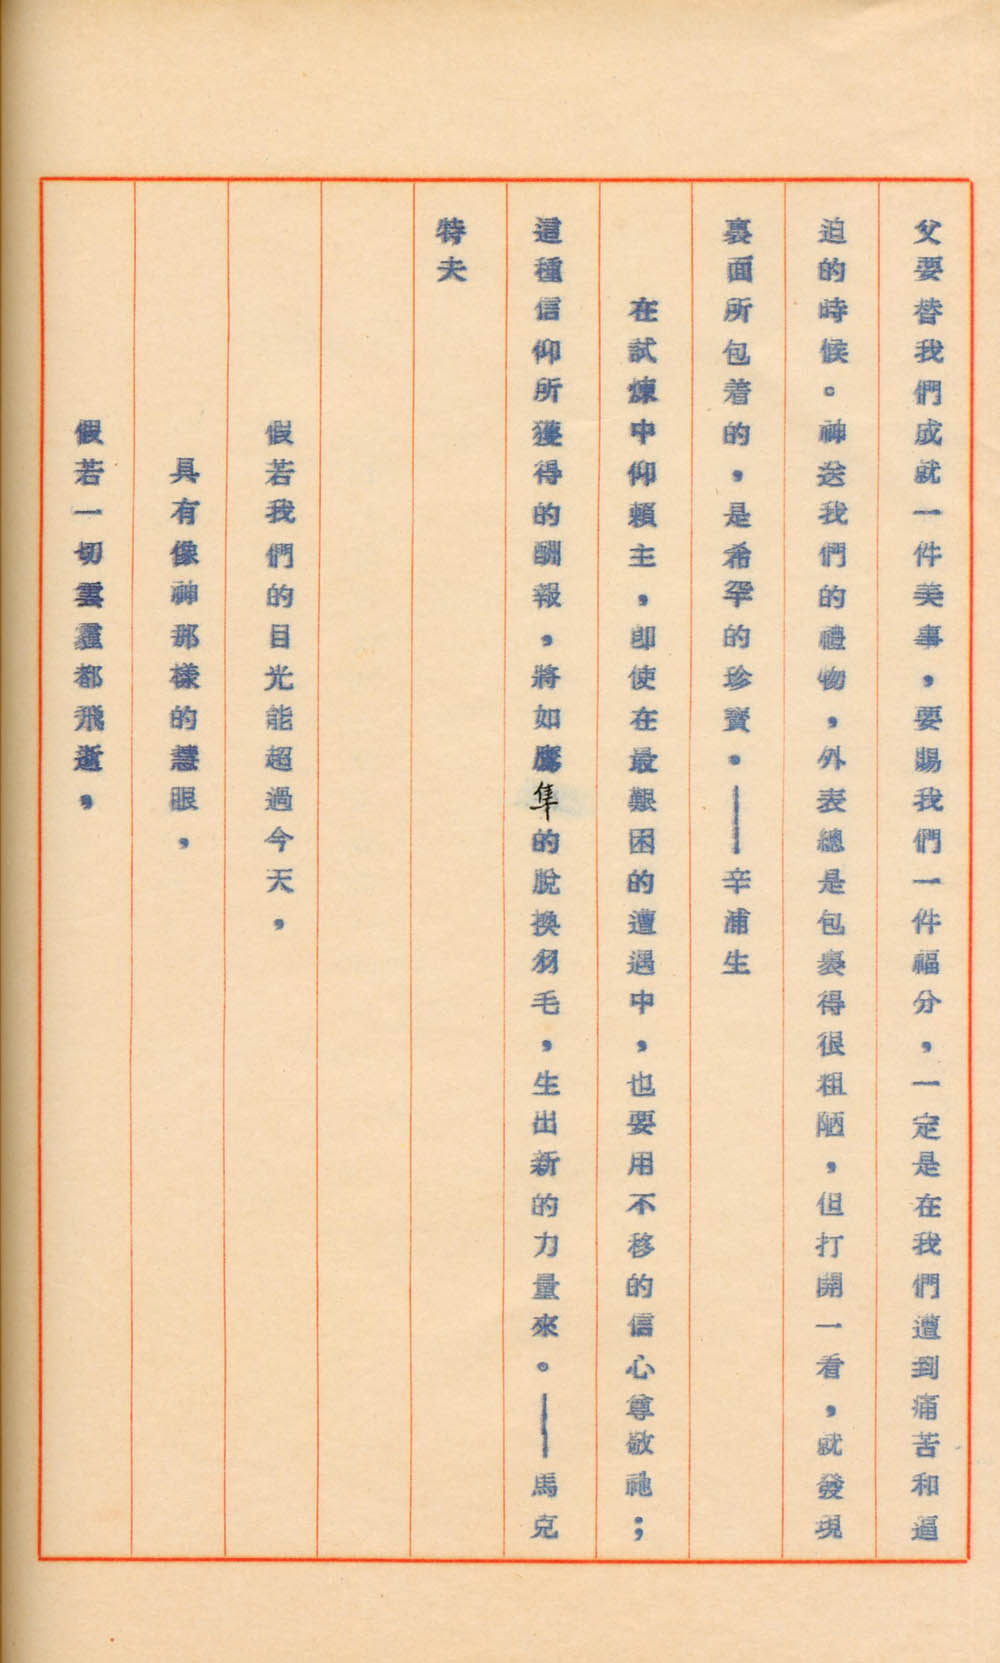 父要替我們成就一件美事，要賜我們一件福分，一定是在我們遭到痛苦和逼
迫的時候。神送我們的禮物，外表總是包裹得很粗陋，但打開一看，就發現
裏面所包着的，是希罕的珍寶。——辛浦生
在試煉中仰賴主，即使在最艱困的遭遇中，也要用不移的信心尊敬祂；
這種信仰所獲得的酬報，將如鷹隼的脫換羽毛，生出新的力量來。——馬克
特夫
假若我們的目光能超過今天，
具有像神那樣的慧眼，
假若一切雲靈都飛逝，